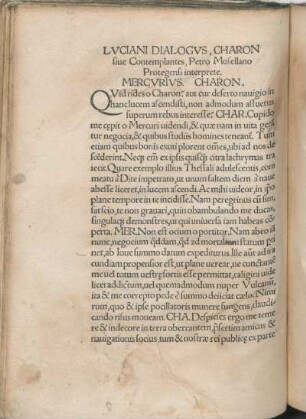 LVCIANI DIALOGVS, CHARON
siue Contemplantes, Petro Mosellano
Protegensi interprete.
MERCVRIVS. CHARON.
QVid rides o Charon? aut cur deserto nauigio in
hanc lucem ascendisti, non admodum assuetus
superum rebus interesse? CHAR. Cupido
me cępit o Mercuri uidendi, & quæ nam in uita gerā
tur negocia, & quibus studiis homines teneant. Tum
etiam quibus bonis exui plorent omēs, ubi ad nos de
scēderint. Necp em̄ ex ipsis quisq̃ citra lachrymas tra
iecit. Quare exemplo illius Thessali adulescentis, com
meatu a Dite imperato, ut unum saltem diem a naue
abesse liceret, in lucem ascendi. Ac mihi uideor, in ip̄o
plane tempore in te incidisse. Nam peregrinus cū sim,
sat scio, te non grauari, quin obambulando me ducas,
singulaq; demonstres, ut qui uniuersa iam habeas cō
perta. MER. Non est ocium o portitor. Nam abeo iā
nunc, negocium q̃ddam, qd ad mortalium statum per
tinet, ab Ioue summo datum expediturus. Ille aūt ad ira
cundiam propensior est, ut plane uerear, ne cunctatū
me uel totum uestrę sortis esse permittat, caligini uide
licet addictum, uel quemadmodum nuper Vulcanū,
ita & me correpto pede e summo deiiciat cælo. Nimi
rum, quo & ipse pocillatoris munere fungens, claudi
cando risus moueam. CHA. Despicies ergo me teme
re & indecore in terra oberrantem, p̄sertim amicus &
nauigationis socius tum & nostræ rei publicę ex parte